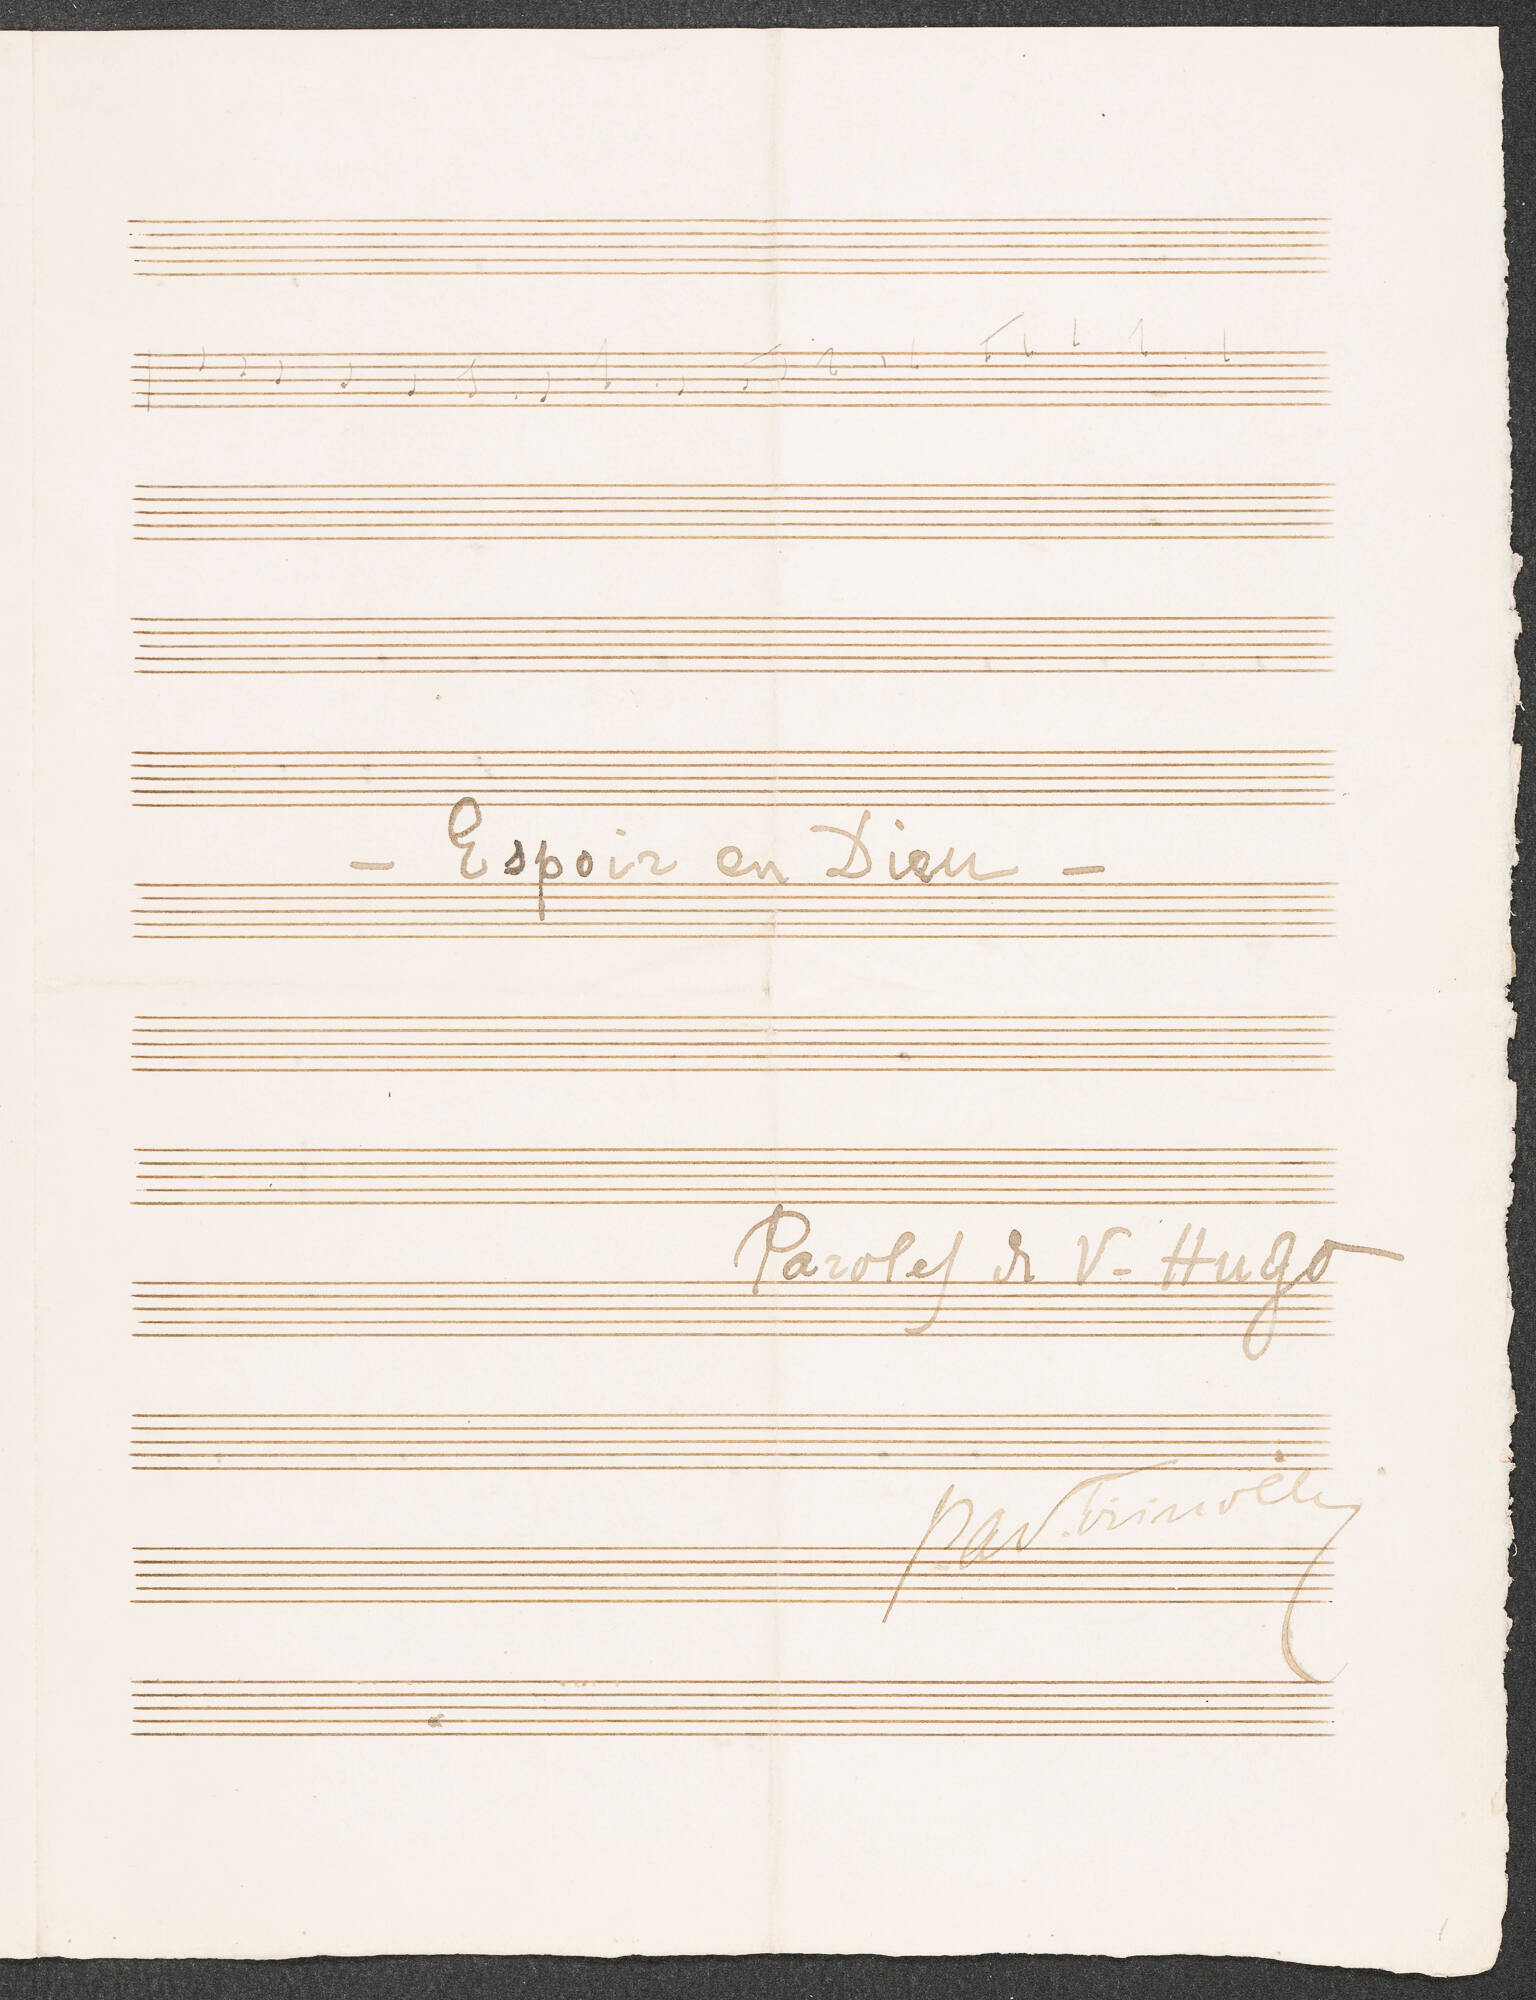 - Espoir en Dieu -
Paroles de V- Hugo